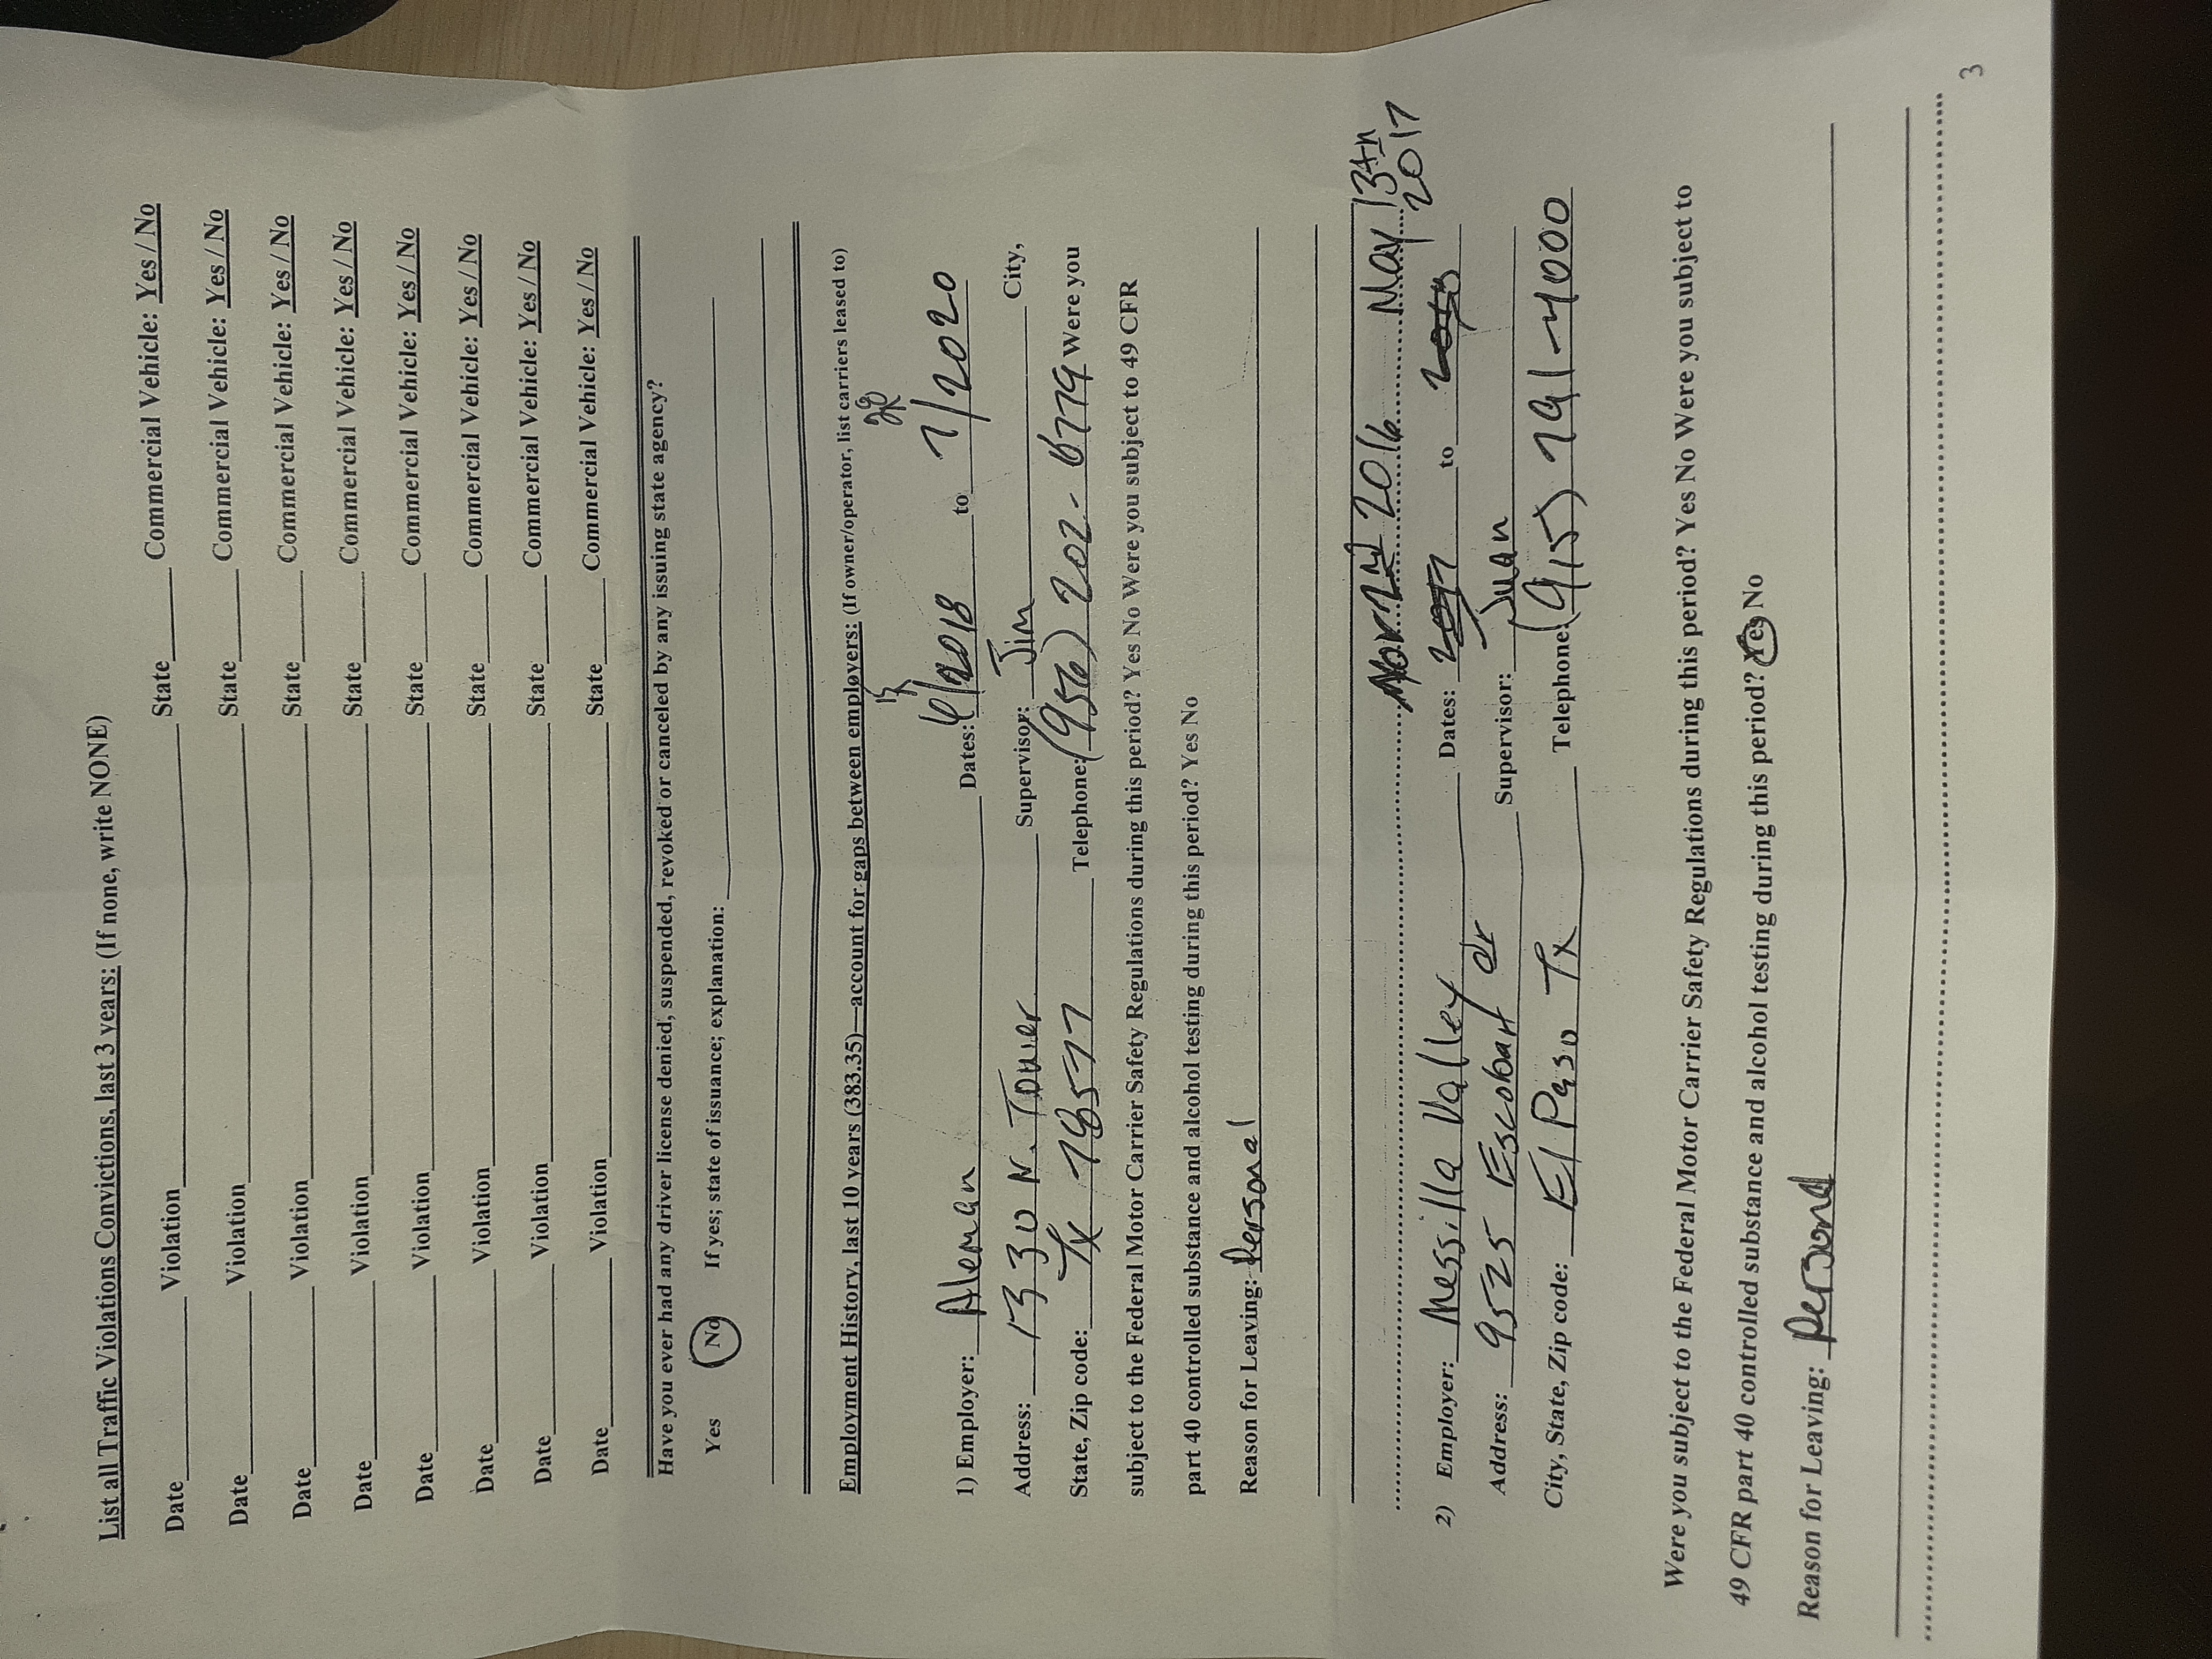 List all Traffic Violations Convictions, last 3 years: (If none, write NONE)
Date Violation State Commercial Vehicle: Yes / No
Date Violation State Commercial Vehicle: Yes / No
Date Violation State Commercial Vehicle: Yes / No
Date Violation State Commercial Vehicle: Yes / No
Date Violation State Commercial Vehicle: Yes / No
Date Violation State Commercial Vehicle: Yes / No
Date Violation State Commercial Vehicle: Yes / No
Date Violation State Commercial Vehicle: Yes / No
Have you ever had any driver license denied, suspended, revoked or canceled by any issuing state agency?
Yes No If yes; state of issuance; explanation:
Employment History, last 10 years (383.35)—account for gaps between employers: (If owner/operator, list carriers leased to)
15 20
1) Employer: Aleman Dates: 6/2018 to 7/2020
Address: 1330 N. Tower Supervisor: Jim City,
State, Zip code: Tx 78577 Telephone: (956) 202-6779 Were you
subject to the Federal Motor Carrier Safety Regulations during this period? Yes No Were you subject to 49 CFR
part 40 controlled substance and alcohol testing during this period? Yes No
Reason for Leaving: Personal
2016 May 13th
2) Employer: Messilla Valley Dates: to 2017
Address: 9525 Escobar dr Supervisor: Juan
City, State, Zip code: El Paso Tx Telephone: (915) 791-4000
Were you subject to the Federal Motor Carrier Safety Regulations during this period? Yes No Were you subject to
49 CFR part 40 controlled substance and alcohol testing during this period? Yes No
Reason for Leaving: Personal
3